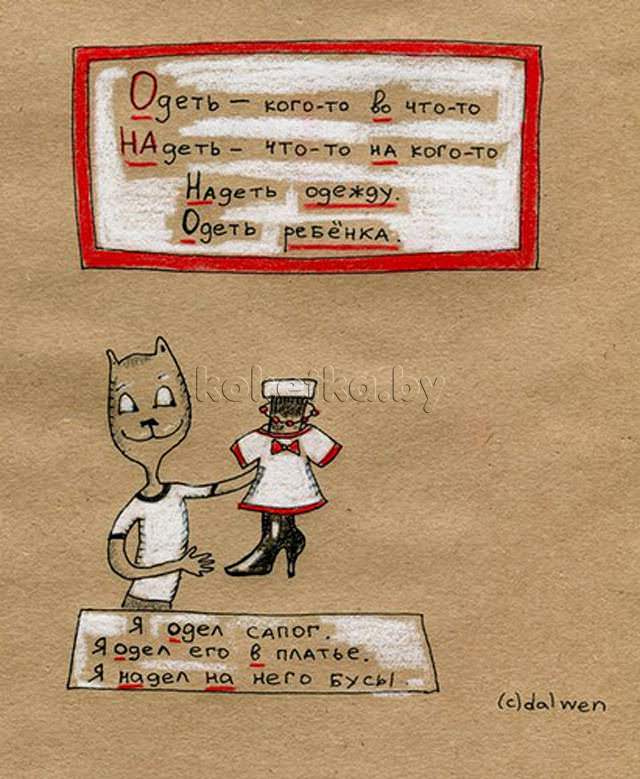 Одеть – кого-то во что-то
НАдеть – что-то на кого-то
Надеть одежду.
Одеть ребёнка.
koketka.by
Я одел сапог.
Я одел его в платье.
Я надел на него бусы.
(c)dalwen